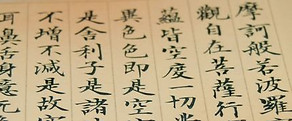 摩訶般若波羅
觀自在菩薩行
蘊皆空度一切
異色色即是空
是舍利子是諸
不增不減是故空
耳鼻舌身意无